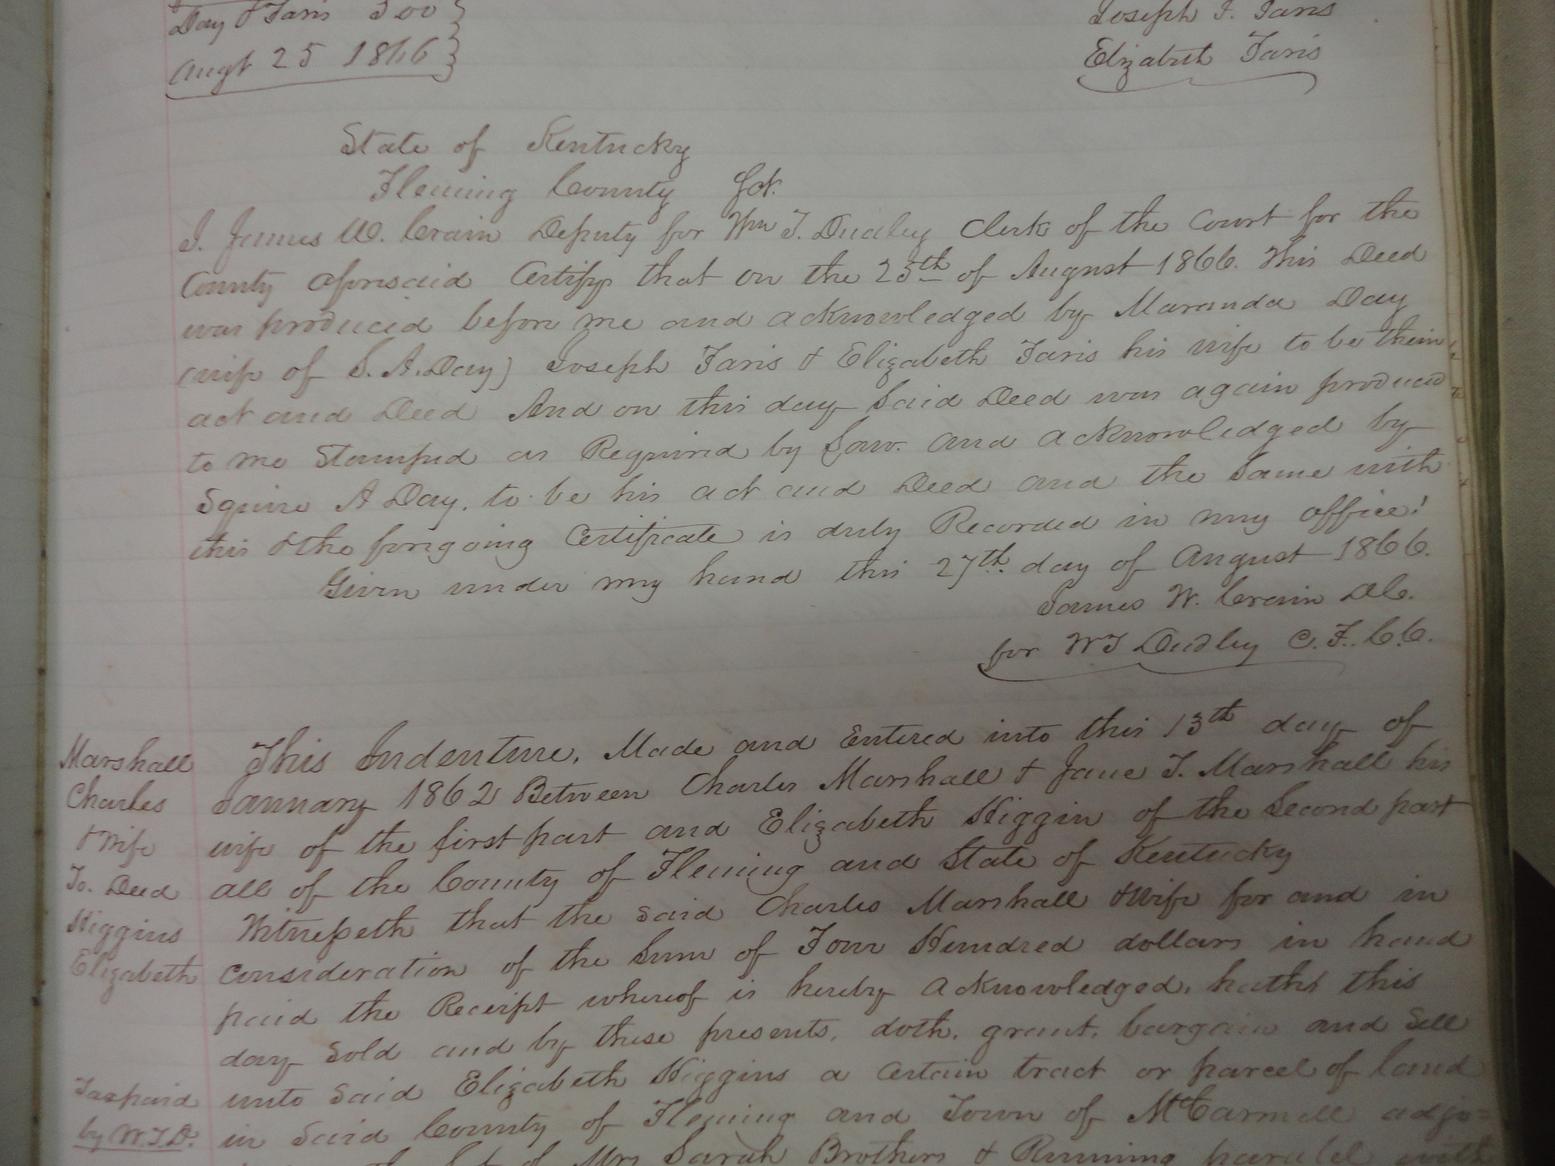 Day & Faris 500
Augt 25 1866
Joseph F. Faris
Elizabeth Faris
State of Kentucky
Fleming County Sct.
I. James W. Crain Deputy for Wm T. Dudley Clerk of the Court for the
County aforesaid Certify that on the 25th of August 1866. This Deed
was produced before me and acknowledged by Maranda Day
(wife of S. A. Day) Joseph Faris & Elizabeth Faris his wife to be their
act and Deed And on this day Said Deed was again produced
to me Stamped as Required by Law. and acknowledged by
Squire A Day. to be his act and Deed and the Same with
this & the foregoing Certificate is duly Recorded in my office!
Given under my hand this 27th day of August 1866.
James W. Crain D.C.
for W T Dudley C. F. C. C.
Marshall
Charles
& Wife
To. Deed
Higgins
Elizabeth
This Indenture, Made and Entered into this 13th day of
January 1862 Between Charles Marshall & Jane T. Marshall his
wife of the first part and Elizabeth Higgin of the Second part
all of the County of Fleming and State of Kentucky
Witnesseth that the said Charles Marshall & Wife for and in
consideration of the Sum of Four Hundred dollars in hand
paid the Receipt whereof is hereby acknowledged. hath this
day Sold and by these presents. doth. grant. bargain and Sell
unto Said Elizabeth Higgins a certain tract or parcel of land
Tax paid
by W.T.D.
in Said County of Fleming and Town of McCarmell adjo=
of Mrs Sarah Brothers & Running paralel with